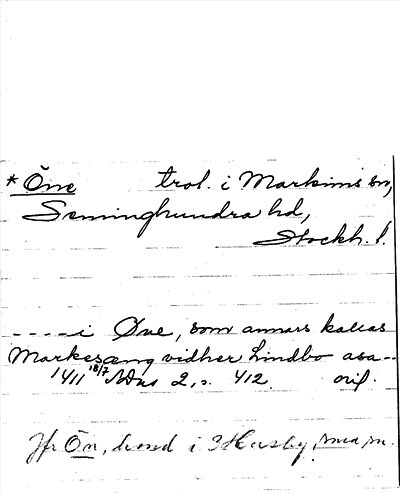 * Öne trol. i Markims sn,
Seminghundra hd,
Stockh. l.
- - - - i Øne, som annars kallas
Markesæng vidher Lindbo asa--
1411 18/7 SDns 2, s. 412. orig.
Jfr Ön, hmd i Husby, sma sn.